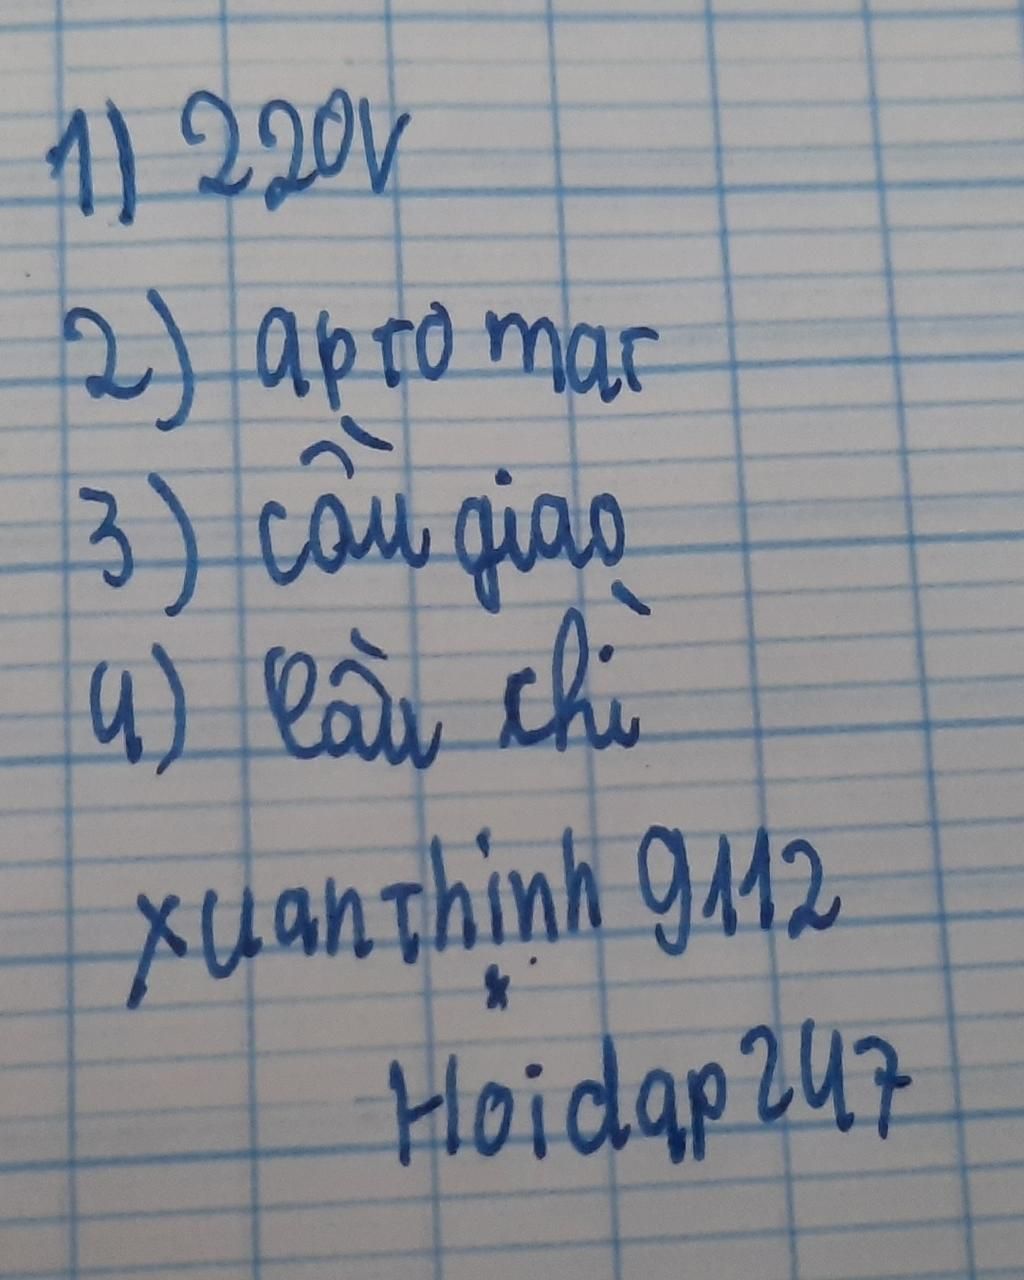 1) 220V
2) apto mat
3) cầu giao
4) cầu chì
xuanthinh 9112
x
Hoidap247